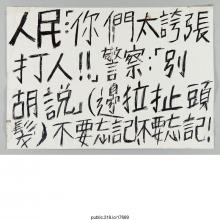 人民:「你們太誇張
打人!!」警察:「別
胡說」(邊拉扯頭
髮)不要忘記,不要忘記!
public.318.io/17669